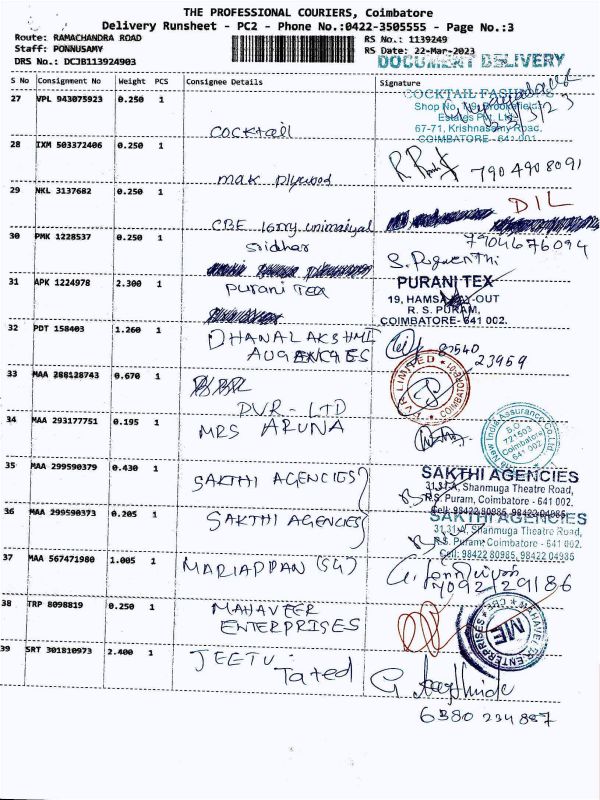 THE PROFESSIONAL COURIERS, Coimbatore
Delivery Runsheet - PC2 - Phone No.:0422-3505555 - Page No.:3
Route: RAMACHANDRA ROAD
RS No.: 1139249
Staff: PONNUSAMY
RS Date: 22-Mar-2023
DRS No.: DCJB113924903
DOCUMENT DELIVERY
S No Consignment No Weight PCS Consignee Details Signature
27 VPL 943075923 0.250 1
COCKTAIL FASHION'S
Shop No. 1/9, Brookefield
Estates Pvt. Ltd
67-71, Krishnasamy Road,
COIMBATORE- 641 001
23/3/23
cocktail
28 IXM 503372406 0.250 1
790 490 8091
mak plywood
29 NKL 3137682 0.250 1
DIL
CBE lorry unimaiyal
30 PMK 1228537 0.250 1
sridhar
7904676094
31 APK 1224978 2.300 1
purani Tex
PURANI TEX
19, HAMSA LAY-OUT
R. S. PURAM,
COIMBATORE- 641 002.
32 PDT 158403 1.260 1
DHANALAKSHMI
AUGENCIES
87540
23959
33 MAA 288128743 0.670 1
PVR LIMITED
COIMBATORE
PVR - LTD
34 MAA 293177751 0.195 1
MRS ARUNA
The New India Assurance Co.Ltd
B.O.
721503
Coimbatore
641 002
35 MAA 299590379 0.430 1
SAKTHI AGENCIES
SAKTHI AGENCIES
31,31A, Shanmuga Theatre Road,
R.S. Puram, Coimbatore - 641 002.
Cell: 98422 80985, 98422 04985
36 MAA 299590373 0.205 1
SAKTHI AGENCIES
SAKTHI AGENCIES
31,31A, Shanmuga Theatre Road,
R.S. Puram, Coimbatore - 641 002.
Cell: 98422 80985, 98422 04985
37 MAA 567471980 1.005 1
MARIAPPAN (SG)
7092129186
38 TRP 8098819 0.250 1
MAHAVEER
ENTERPRISES
MAHAVEER ENTERPRISES
CBE
ME
39 SRT 301810973 2.400 1
JEETU
Tated
6380 234 887